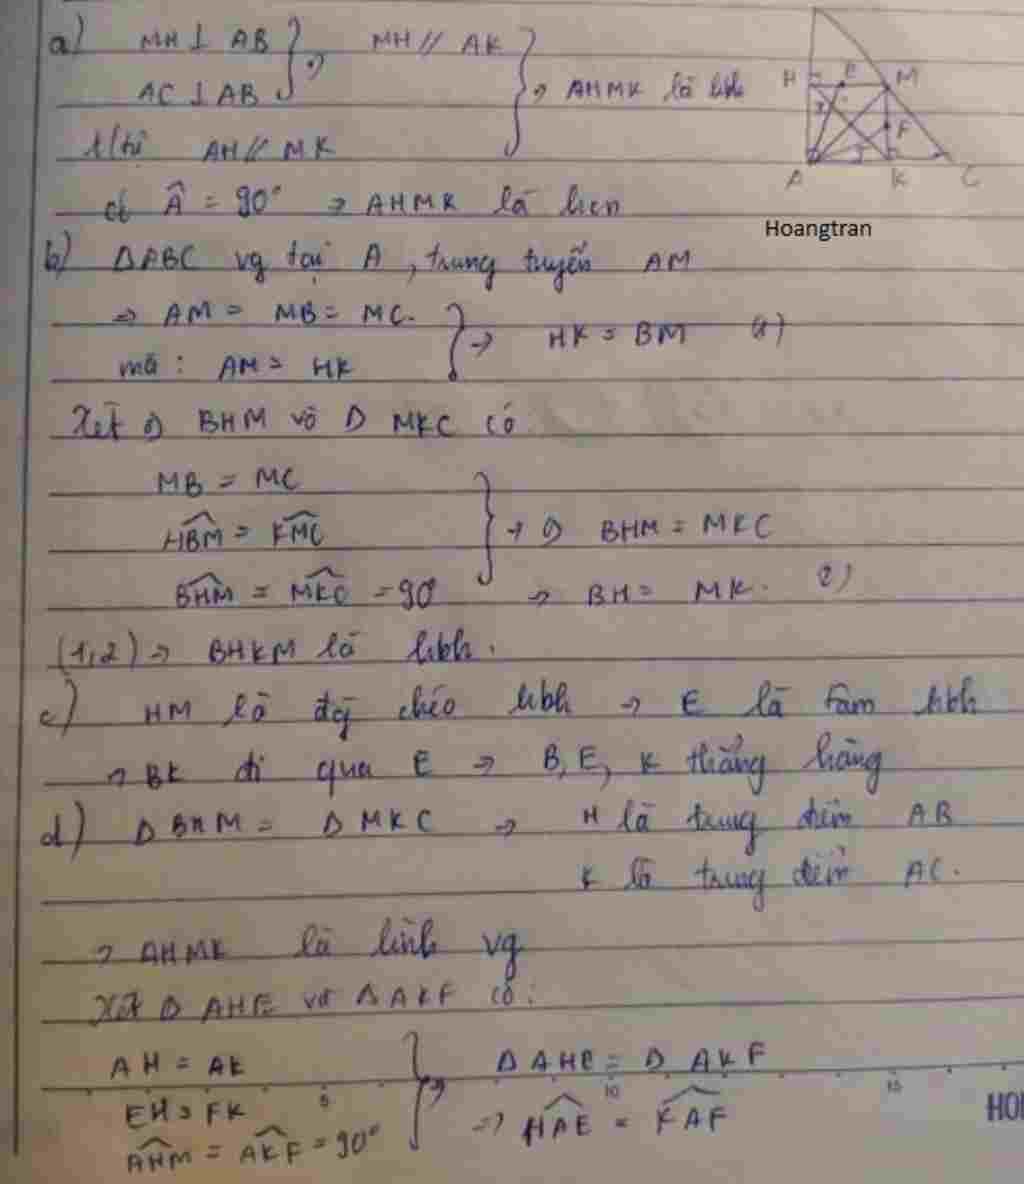 a) MH ⊥ AB } → MH // AK } → AHMK là hbh
AC ⊥ AB
t/tự AH // MK
có Â = 90° → AHMK là hcn
H E M
F
A K C
Hoangtran
b) ΔABC vg tại A, trung tuyến AM
→ AM = MB = MC. } → HK = BM (1)
mà : AM = HK
Xét Δ BHM và Δ MKC có
MB = MC
HBM = KMC } → Δ BHM = MKC
BHM = MKC = 90° → BH = MK. 2)
(1,2) → BHKM là hbh.
c) HM là đg chéo hbh → E là tâm hbh
→ BK đi qua E → B, E, K thẳng hàng
d) Δ BHM = Δ MKC → H là trung điểm AB
K là trung điểm AC.
→ AHMK là hình vg
Xét Δ AHE và Δ AKF có:
AH = AK } → Δ AHE = Δ AKF
EH = FK → HAE = KAF
AHM = AKF = 90°
5 10 15